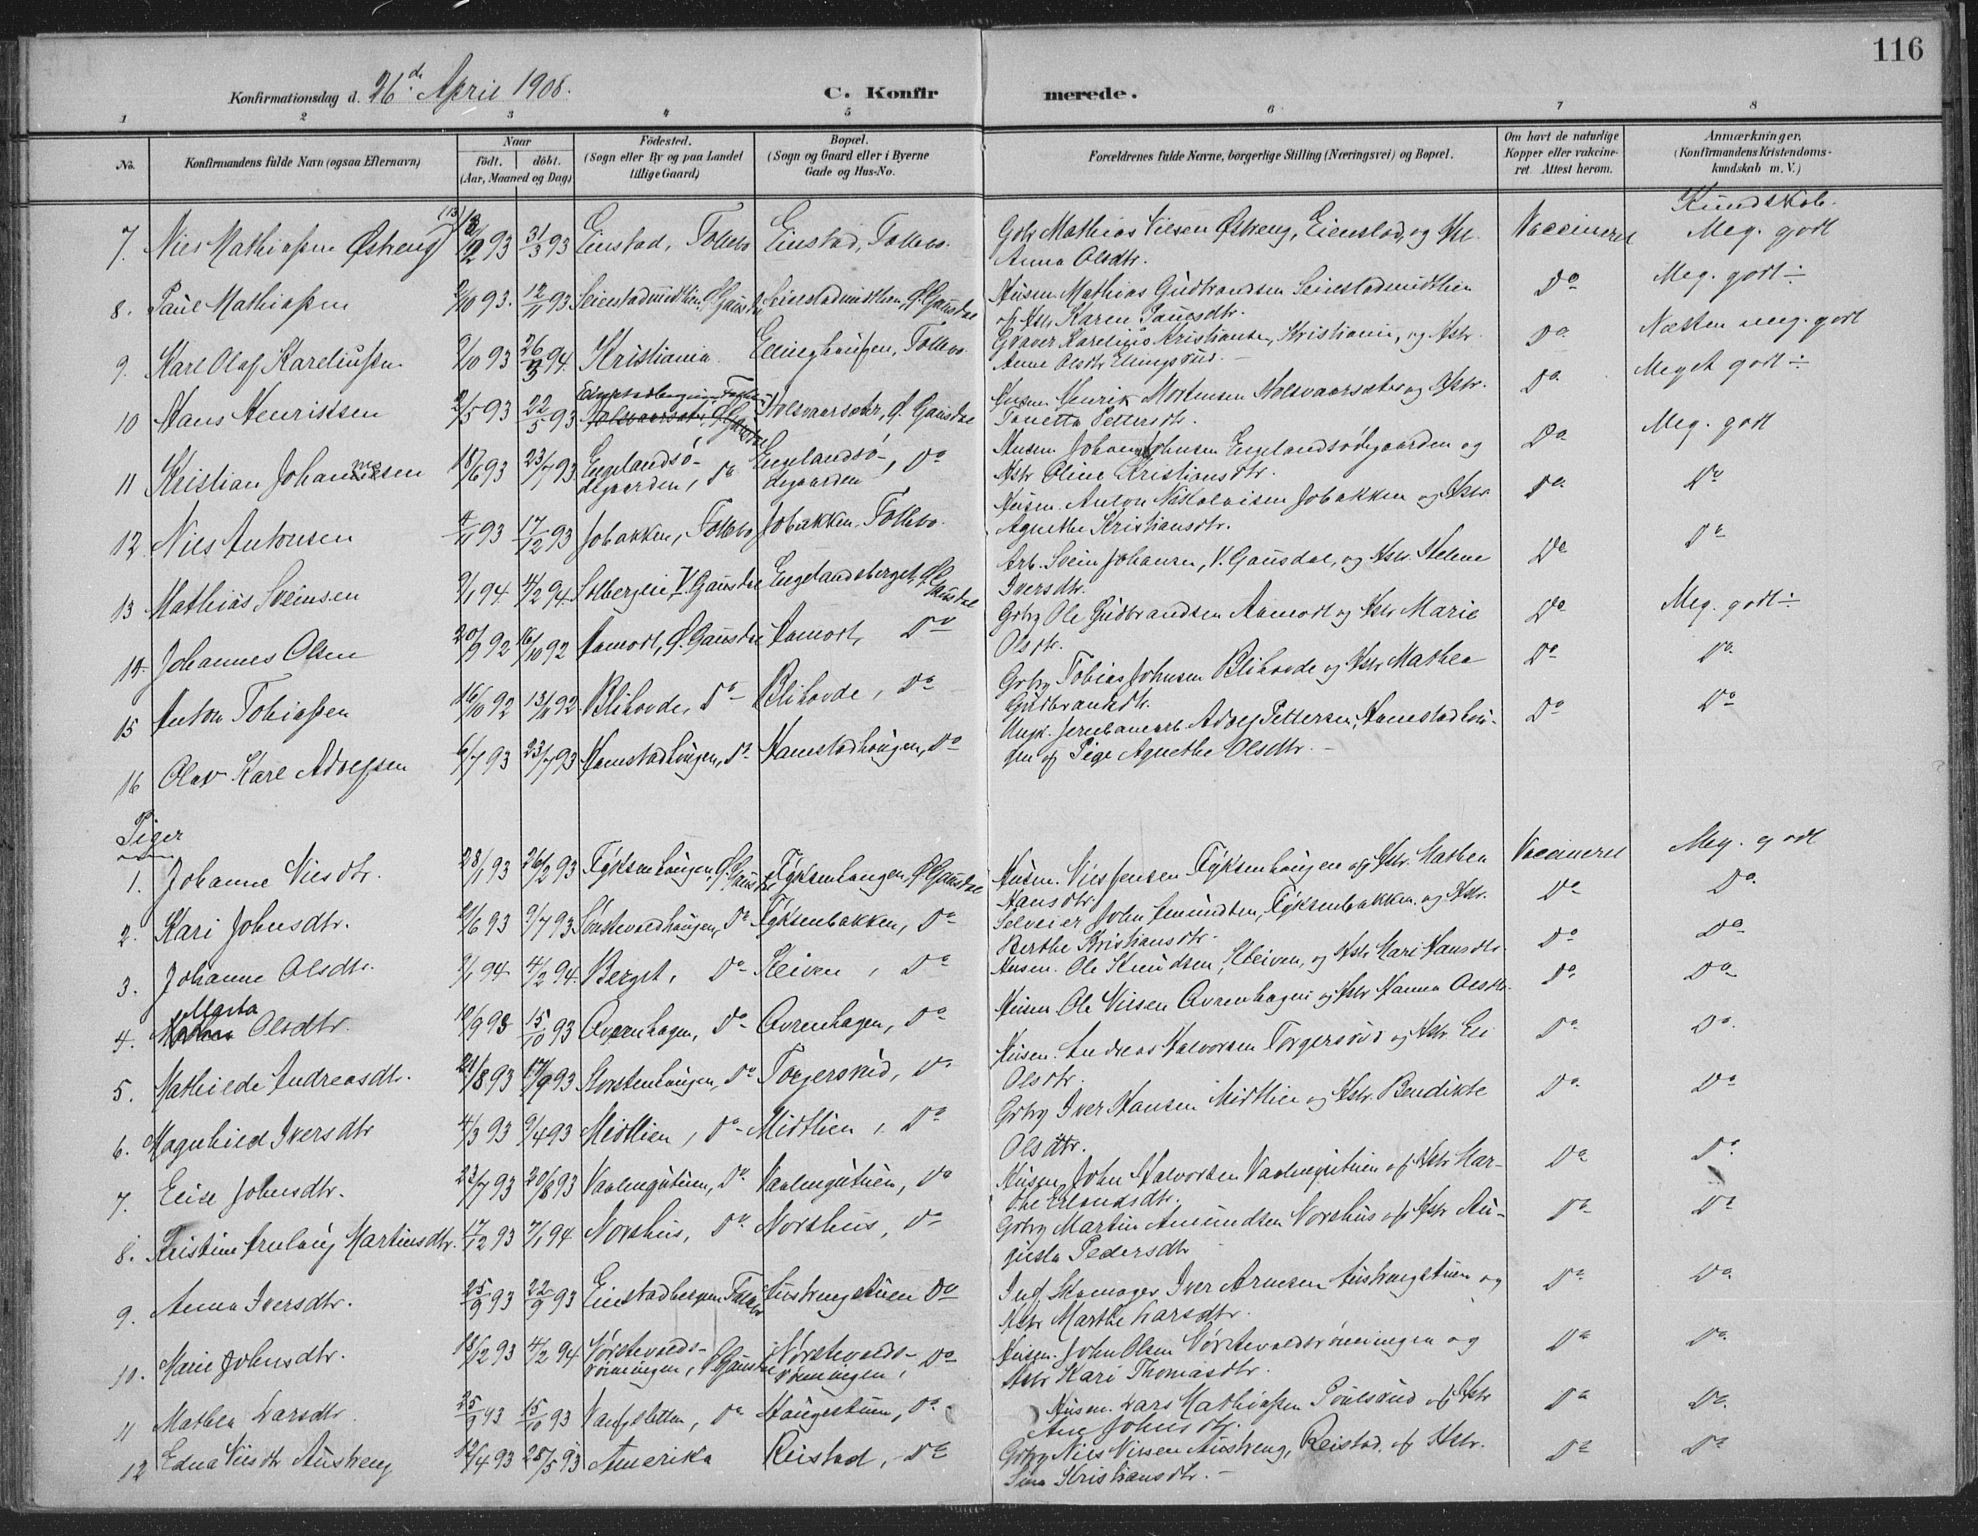 116
Konfirmationsdag d. 26de April 1908. C. Konfirmerede.
1 2 3 4 5 6 7 8
No. Konfirmandens fulde Navn (ogsaa Efternavn) Naar født. døbt. (Aar, Maaned og Dag) Fødested. (Sogn eller By og paa Landet tillige Gaard) Bopæl. (Sogn og Gaard eller i Byerne Gade og Hus-No. Forældrenes fulde Navne, borgerlige Stilling (Næringsvei) og Bopæl. Om havt de naturlige Kopper eller vaccineret Attest herom. Anmærkninger, (Konfirmandens Kristendomskundskab m. V.)
Kundskab.
7. Nils Mathiassen Østreng 93 31/3 93 Einstad, Follebo Einstad, Follebo. Gbr Mathias Nilsen Østreng, Einstad, og Hst. Vaccineret Meg. godt
Anna Olsdtr.
8. Paul Mathiassen 2/10 93. 12/11 93 Seiestadmidtlien Ø. Gausdal Seiestadmidtlien, Ø. Gausdal Husm. Mathias Gudbrandsen Seiestadmidtlien Do Meg. godt ÷
og Hstr Karen Paulsdtr.
9. Karl Olaf Kareliussen 9/10 93 26/3 94 Kristiania. Ellinghaugen, Follebo. Graver Karelius Kristiansen, Kristiania, og Hstr. Do Næsten meg. godt
Anne Olsdtr Ellingsrud. —
10 Hans Henriksen 2/5 93 22/5 93 Holsvaarsæter, Ø. Gausdal Holsvaarsæter, Ø. Gausdal Husm. Henrik Mortensen Holsvaarsæter og Hstr. Do Meget godt ÷
Janetta Pettersdtr.
11 Kristian Johannesen 18/6 93 23/7 93 Engelandsødegaarden, Do Engelandsødegaarden, Do Husm. Johannes Johnsen Engelandsødegaarden og Do Meg. godt
Hstr Oline Kristiansdtr.
12 Nils Antonsen 4/11 93 17/12 93 Jobakken, Follebo Jobakken, Follebo. Husm. Anton Nikolaisen Jobakken og Hstr. Do Do
Agnethe Kristiansdtr.
13 Mathias Sveinsen 9/1 94 4/2 94 Solberglien V. Gausdal Engelandsberget, Ø. Gausdal Arb. Svein Johansen, V. Gausdal, og Hstr. Helene Do Do
Iversdtr.
14. Johannes Olsen 20/9 92 16/10 92 Aamodt, Ø. Gausdal Aamodt, Do Grbr Ole Gudbrandsen Aamodt og Hstr Marie Do Meg. godt ÷
Olsdtr.
15 Anton Tobiassen 16/10 92 13/11 92 Blihovde, Do Blihovde, Do Grbr Tobias Johnsen Blihovde og Hstr Mathea Do Do
Gudbrandsdtr.
16 Olav Karl Adolfsen 6/7 93 23/7 93 Hamstadhaugen, Do Hamstadhaugen, Do Ungk. Jernbanearb. Adolf Pettersen, Hamstadhau- Do Do
gen og Pige Agnethe Olsdtr. —
Piger
1. Johanne Nilsdtr. 28/1 93 26/2 93 Fyksenhaugen, Ø. Gausdal Fyksenhaugen, Ø. Gausdal Husm. Nils Jensen Fyksenhaugen og Hstr. Mathea Vaccineret Meg. godt
Hansdtr.
2. Kari Johnsdtr. 21/6 93 9/7 93 Sørstevoldhaugen, Do Fyksenbakken, Do Selveier John Amundsen, Fyksenbakken og Hstr. Do Do.
Berthe Kristiansdtr.
3. Johanne Olsdtr. 9/1 94 4/2 94. Berget, Do Kleiven, Do Husm. Ole Knudsen, Kleiven, og Hstr Mari Hansdtr. Do Do
4. Marta Olsdtr. 12/9 93 15/10 93 Ovrenhagen, Do Ovrenhagen, Do Husm Ole Nilsen Ovrenhagen og Hstr Hanna Olsdtr. Do Do
5. Mathilde Andreasdtr. 21/8 93 17/9 93 Storstenhaugen, Do Torgersrud, Do Husm. Andreas Halvorsen Torgersrud og Hstr Eli Do Do.
Olsdtr.
6. Magnhild Iversdtr 4/3 93 9/4 93 Midtlien, Do Midtlien, Do Grbr Iver Hansen Midtlien og Hstr. Bendikte Do Do
Olsdtr.
7. Elise Johnsdtr. 23/7 93 20/8 93 Vaalengutuen, Do Vaalengutuen, Do Husm. John Halvorsen Vaalengutuen og Hstr Mar- Do Do
the Erlandsdtr.
8. Kristine Arnlaug Martinsdtr. 17/12 93 7/1 94 Norshus, Do Norshus, Do Grbr Martin Amundsen Norshus og Hstr Au- Do Do
gusta Pedersdtr
9. Anna Iversdtr. 25/9 93 22/9 93 Einstadbergen Follebo Austrengstuen Do Ind. Skomager Iver Arnesen Austrengstuen og Do Do
Hstr Marthe Larsdtr.
10. Marie Johnsdtr. 18/12 93 4/2 94 Nørstevoldsrønningen, Ø. Gausdal Nørstevoldsrønningen, Do Husm. John Olsen Nørstevoldsrønningen og Do Do
Hstr Kari Thomasdtr.
11 Mathea Larsdtr 25/9 93 15/10 93 Vangsletten, Do Haugestuen, Do Husm. Lars Mathiassen Poulsrud og Hstr Do Do
Ane Johnsdtr.
12 Edna Nilsdtr Austreng 12/4 93 28/5 93 Amerika Reistad, Do Grbr Nils Nilsen Austreng, Reistad, og Hstr. Do Do
Sina Kristiansdtr. —